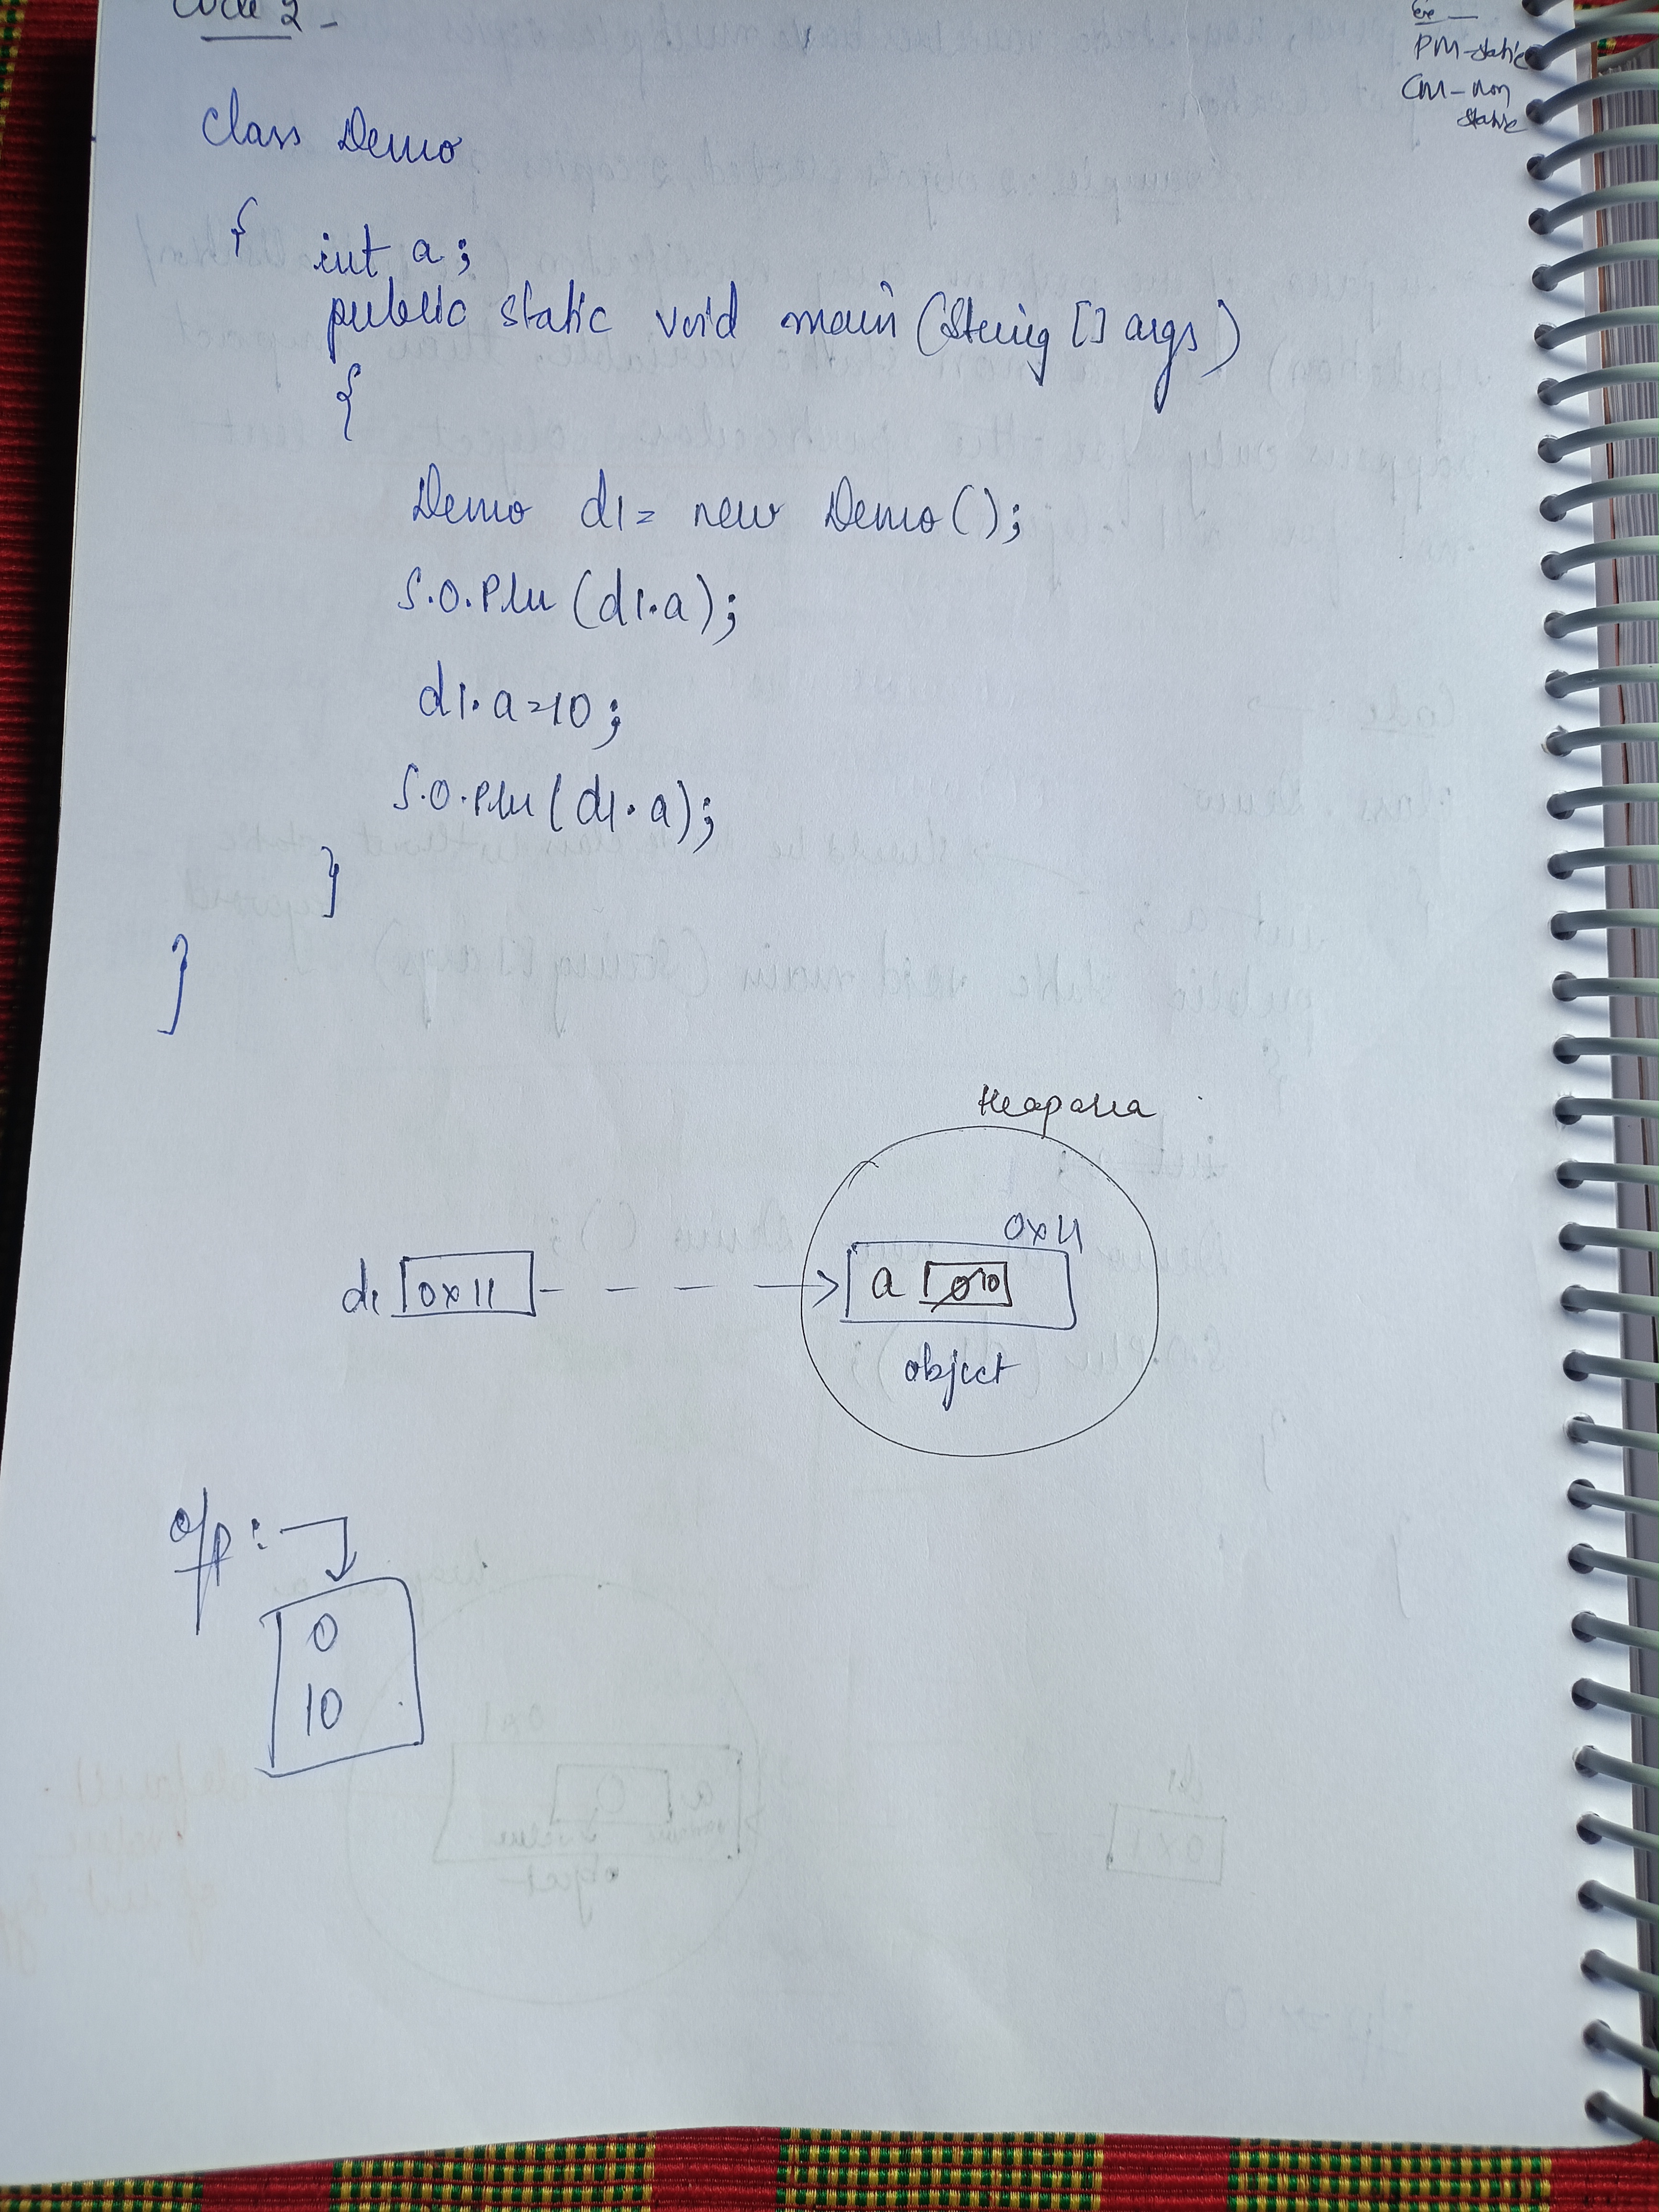 Code 2 -
PM-static
CM-non
static
class Demo
{ int a;
public static void main (String [] args)
{
Demo d1= new Demo();
S.O.Pln (d1.a);
d1.a=10;
S.O.Pln (d1.a);
}
}
Heap area
0x11
d1 0x11 a 0 10
object
o/p:
0
10